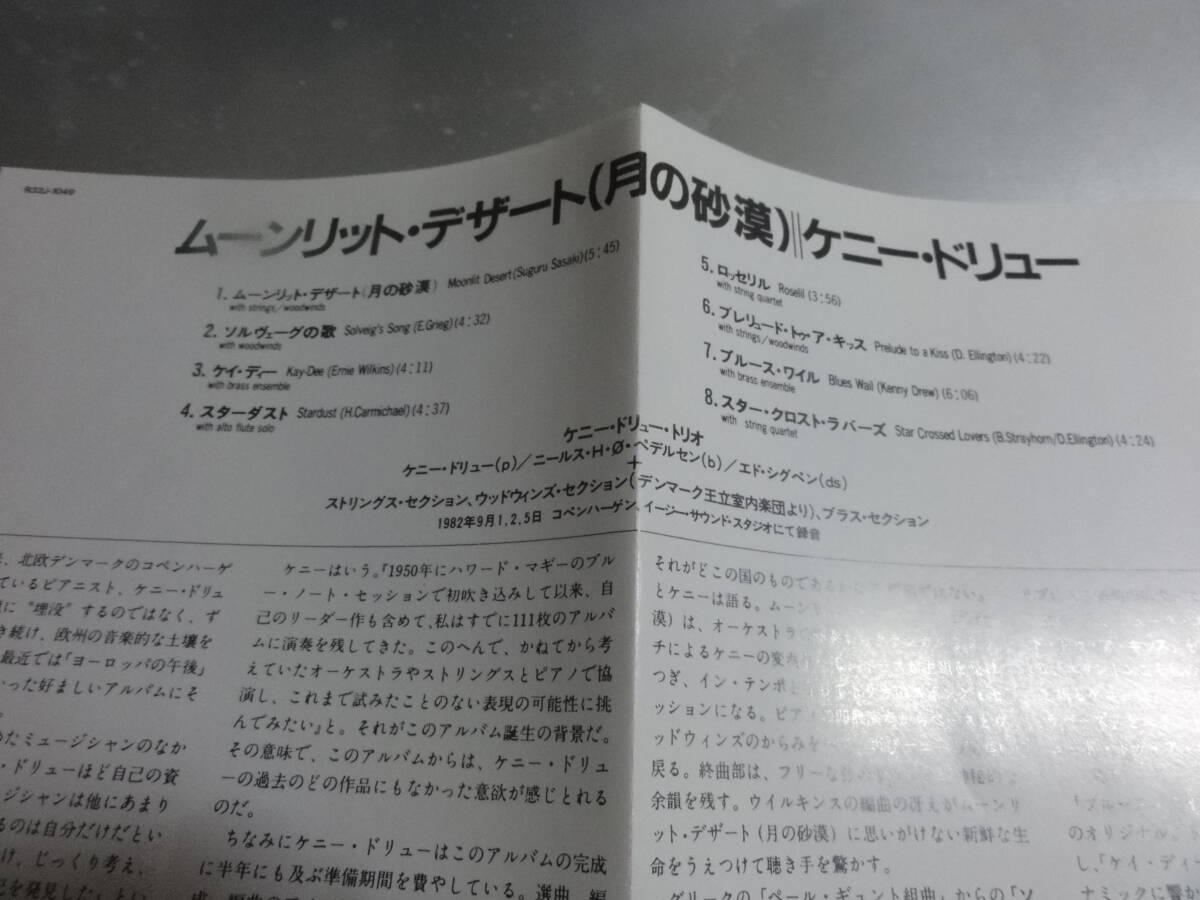 R32J-1049
ムーンリット・デザート(月の砂漠)‖ケニー・ドリュー
1. ムーンリット・デザート(月の砂漠) Moonlit Desert (Suguru Sasaki) (5:45)
with strings/woodwinds
2. ソルヴェーグの歌 Solveig's Song (E.Grieg) (4:32)
with woodwinds
3. ケイ・ディー Kay-Dee (Ernie Wilkins) (4:11)
with brass ensemble
4. スターダスト Stardust (H.Carmichael) (4:37)
with alto flute solo
5. ロッセリル Roselil (3:56)
with string quartet
6. プレリュード・トゥ・ア・キッス Prelude to a Kiss (D. Ellington) (4:22)
with strings/woodwinds
7. ブルース・ワイル Blues Wail (Kenny Drew) (6:06)
with brass ensemble
8. スター・クロスト・ラバーズ Star Crossed Lovers (B.Strayhorn/D.Ellington) (4:24)
with string quartet
ケニー・ドリュー・トリオ
ケニー・ドリュー(p)/ニールス・H・Ø・ペデルセン(b)/エド・シグペン(ds)
+
ストリングス・セクション、ウッドウィンズ・セクション(デンマーク王立室内楽団より)、ブラス・セクション
1982年9月1,2,5日 コペンハーゲン、イージー・サウンド・スタジオにて録音
、北欧デンマークのコペンハーゲ
ているピアニスト、ケニー・ドリュ
に“埋没”するのではなく、ず
き続け、欧州の音楽的な土壌を
最近では「ヨーロッパの午後」
かった好ましいアルバムにそ
。
めたミュージシャンのなか
・ドリューほど自己の資
ージシャンは他にあまり
るのは自分だけだとい
け、じっくり考え、
己を発見した」とい
ケニーはいう。『1950年にハワード・マギーのブル
ー・ノート・セッションで初吹き込みして以来、自
己のリーダー作も含めて、私はすでに111枚のアルバ
ムに演奏を残してきた。このへんで、かねてから考
えていたオーケストラやストリングスとピアノで協
演し、これまで試みたことのない表現の可能性に挑
んでみたい』と。それがこのアルバム誕生の背景だ。
その意味で、このアルバムからは、ケニー・ドリュ
ーの過去のどの作品にもなかった意欲が感じとれる
のだ。
ちなみにケニー・ドリューはこのアルバムの完成
に半年にも及ぶ準備期間を費やしている。選曲、編
それがどこの国のものであるかは
とケニーは語る。ムーン
漠)は、オーケストラ
チによるケニーの変奏
つぎ、イン・テンポ
ッションになる。ピア
ッドウィンズのからみを
戻る。終曲部は、フリーな
余韻を残す。ウイルキンスの編曲の冴えがムーンリ
ット・デザート(月の砂漠)に思いがけない新鮮な生
命をうえつけて聴き手を驚かす。
グリークの「ペール・ギュント組曲」からの「ソ
「ブルー
のオリジナル。
し、「ケイ・ディ
ナミックに響か